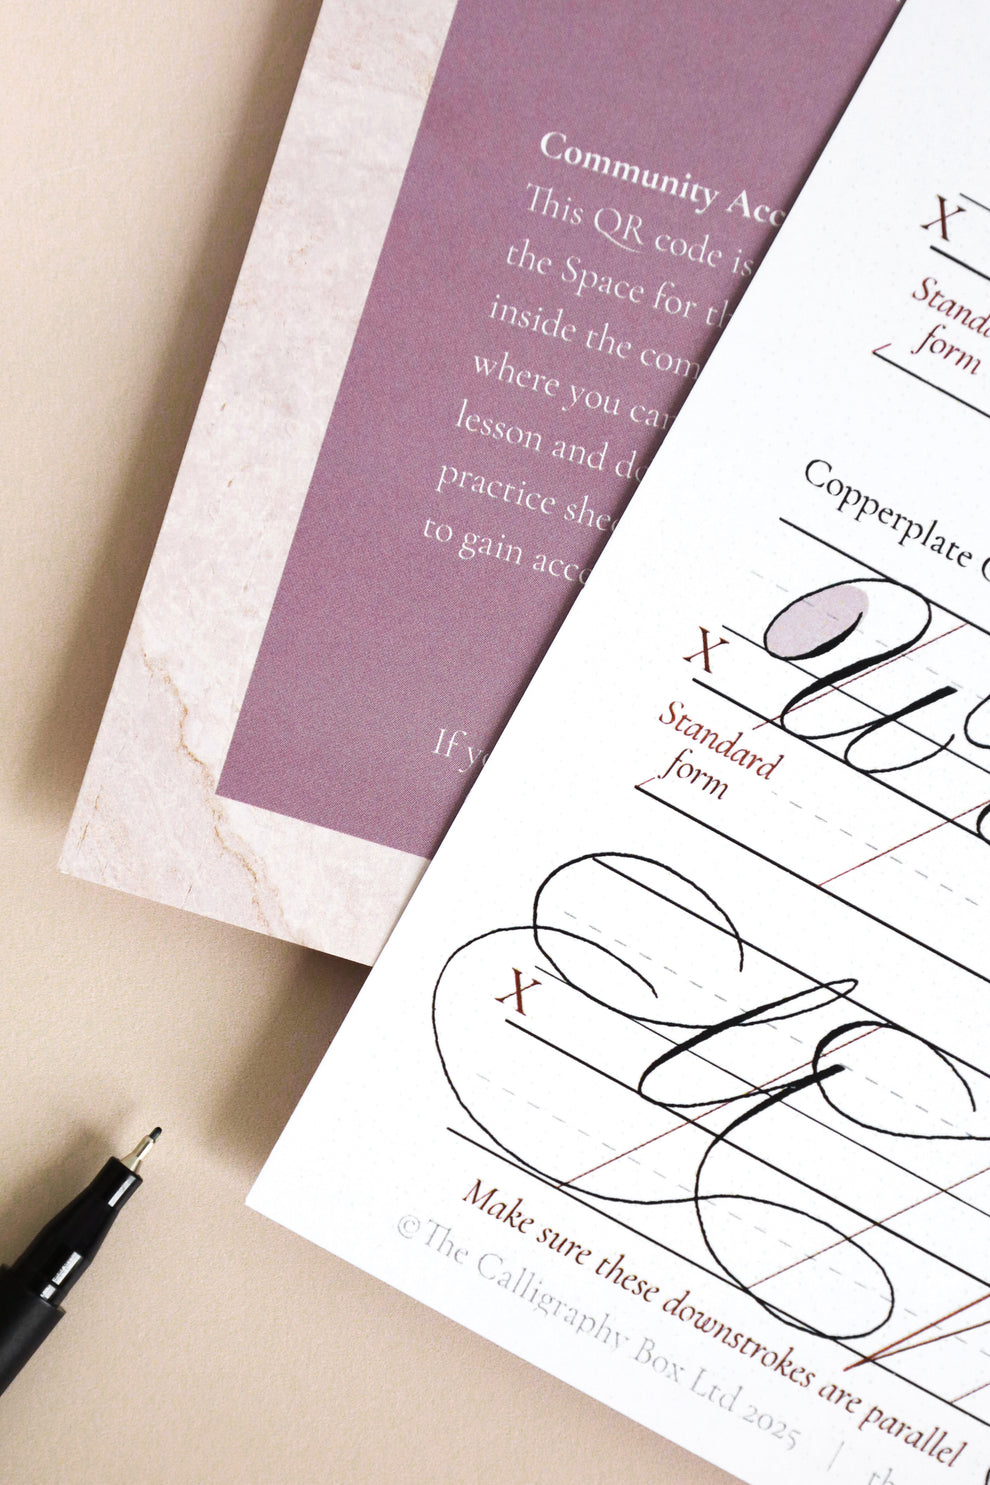 Community
This QR code is
the Space for
inside the
where you
lesson and
practice
to gain
If
X
form
Copperplate
X
Standard
form
X
Make sure these downstrokes are parallel
© The Calligraphy Box Ltd 2025 |